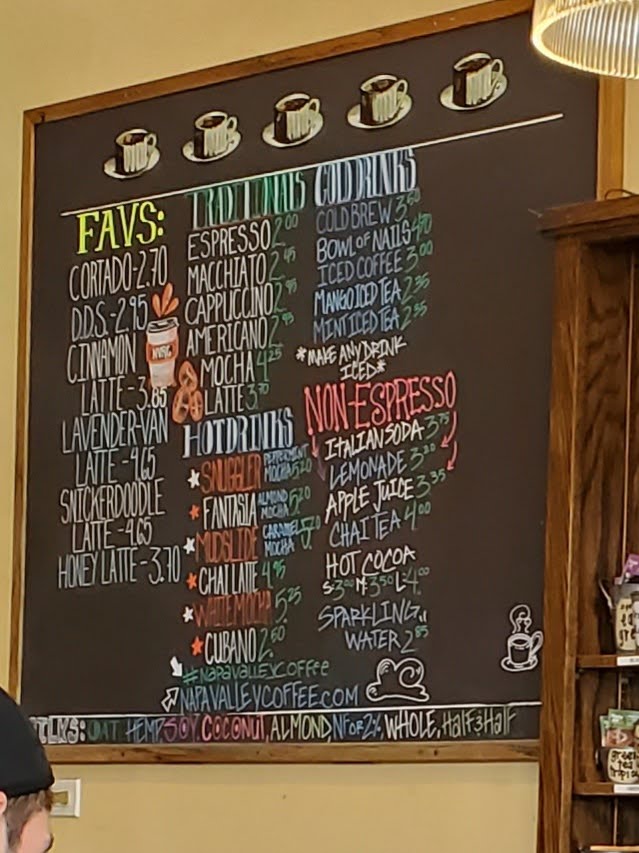 FAVS:
CORTADO-2.70
D.D.S.-2.95
CINNAMON
LATTE-3.85
LAVENDER-VAN
LATTE-4.65
SNICKERDOODLE
LATTE-4.65
HONEY LATTE-3.70
NVRC
TRADITIONALS
ESPRESSO 2.00
MACCHIATO 2.45
CAPPUCCINO 2.95
AMERICANO
MOCHA 4.25
LATTE 3.70
HOT DRINKS
SNUGGLER PEPPERMINT MOCHA 5.20
FANTASIA ALMOND MOCHA 5.20
MUDSLIDE CARAMEL MOCHA 5.20
CHAI LATTE 4.95
WHITE MOCHA 5.25
CUBANO 2.50
COLD DRINKS
COLD BREW 3.50
BOWL OF NAILS
ICED COFFEE 3.00
MANGO ICED TEA
MINT ICED TEA
*MAKE ANY DRINK
ICED*
NON-ESPRESSO
ITALIAN SODA 3.75
LEMONADE
APPLE JUICE 3.35
CHAI TEA 4.00
HOT COCOA
S:3.00 M:3.50 L:4.00
SPARKLING
WATER 2.85
#NAPAVALLEYCOFFEE
NAPAVALLEYCOFFEE.COM
OAT HEMP, SOY COCONUT, ALMOND, NF OR 2% WHOLE, HALF & HALF